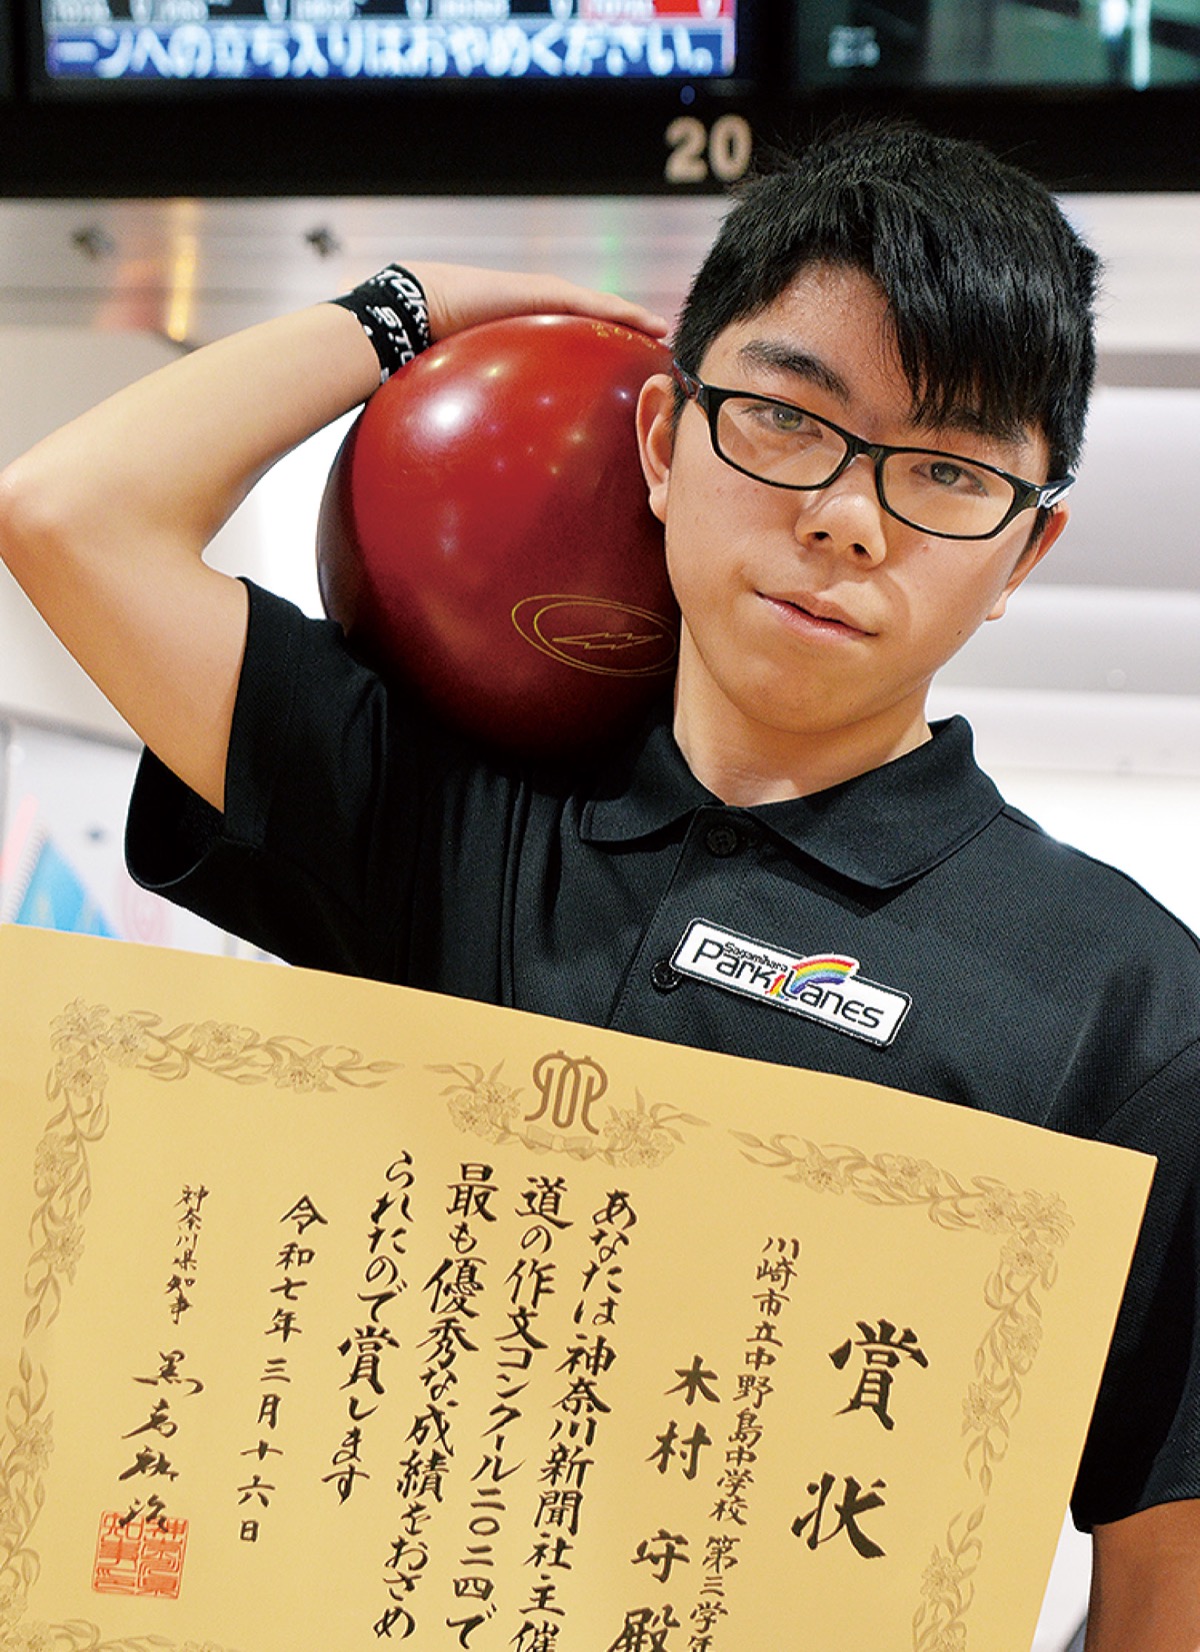 ーンへの立ち入りはおやめください。
20
Sagamihara
Park Lanes
賞状
川崎市立中野島中学校 第三学年
木村 守 殿
あなたは神奈川新聞社主催
道の作文コンクール二〇二四で
最も優秀な成績をおさめ
られたので賞します
令和七年三月十六日
神奈川県知事 黒岩祐治